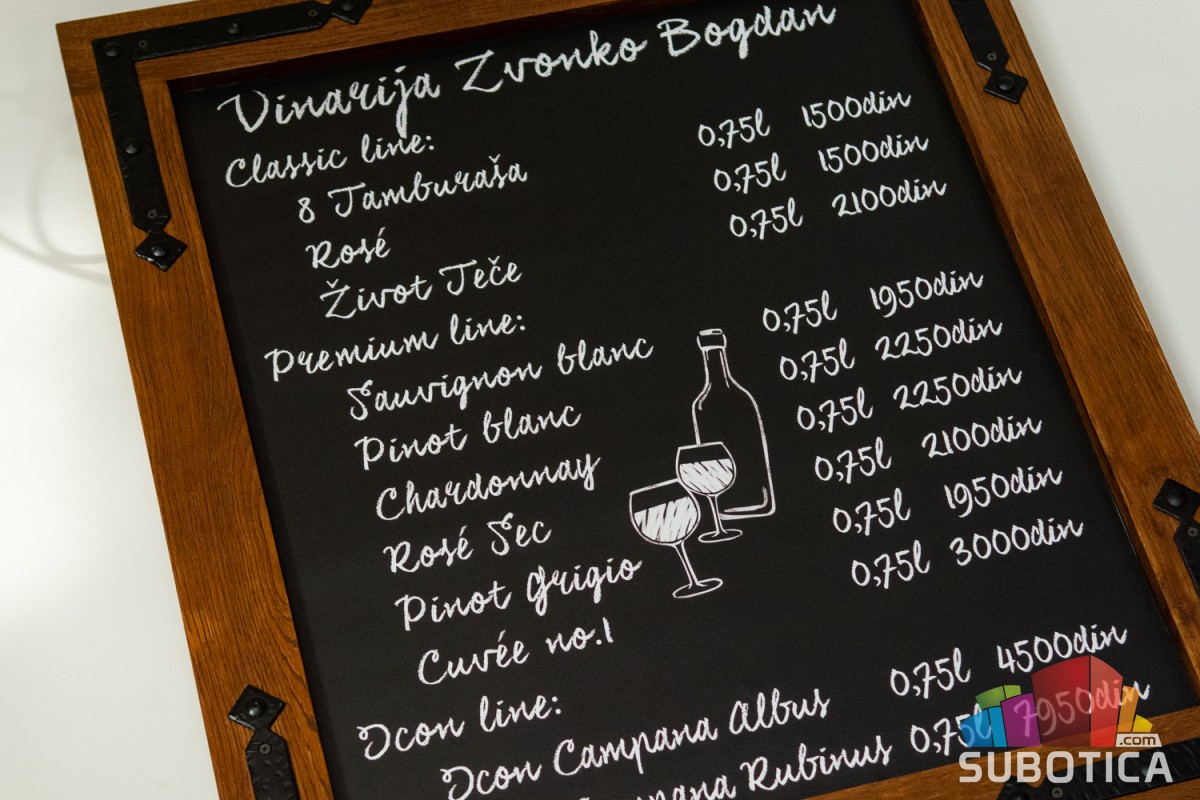 Vinarija Zvonko Bogdan
Classic line:
8 Tamburaša 0,75l 1500din
Rosé 0,75l 1500din
Život Teče 0,75l 2100din
Premium line:
Sauvignon blanc 0,75l 1950din
Pinot blanc 0,75l 2250din
Chardonnay 0,75l 2250din
Rosé Sec 0,75l 2100din
Pinot Grigio 0,75l 1950din
Cuvée no.1 0,75l 3000din
Icon line:
Icon Campana Albus 0,75l 4500din
Rubinus 0,75l 7950din
.com
SUBOTICA